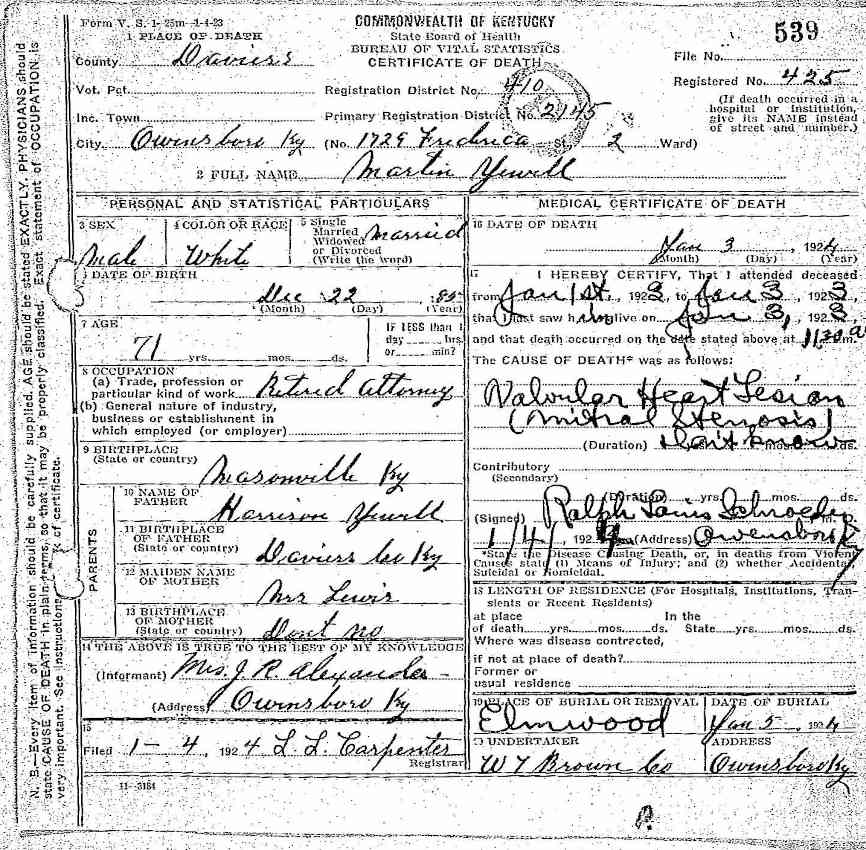 Form V. S. 1-25m-1-4-23
COMMONWEALTH OF KENTUCKY
State Board of Health
BUREAU OF VITAL STATISTICS
CERTIFICATE OF DEATH
539
1 PLACE OF DEATH
County Daviess
File No.
Registered No. 425
Vot. Pct. Registration District No. 410
(If death occurred in a hospital or institution, give its NAME instead of street and number.)
Inc. Town Primary Registration District No. 2145
City Owensboro Ky (No. 1729 Frederica St. 2 Ward)
2 FULL NAME Martin Yewell
PERSONAL AND STATISTICAL PARTICULARS
3 SEX Male
4 COLOR OR RACE White
5 Single Married Widowed or Divorced (Write the word) Married
6 DATE OF BIRTH
Dec 22
(Month) (Day) (Year)
7 AGE
71 yrs. mos. ds.
IF LESS than 1 day hrs. or min?
8 OCCUPATION
(a) Trade, profession or particular kind of work Retired Attorney
(b) General nature of industry, business or establishment in which employed (or employer)
9 BIRTHPLACE
(State or country) Masonville Ky
PARENTS
10 NAME OF FATHER Harrison Yewell
11 BIRTHPLACE OF FATHER
(State or country) Daviess Co Ky
12 MAIDEN NAME OF MOTHER Mrs Lewis
13 BIRTHPLACE OF MOTHER
(State or country) Dont no
14 THE ABOVE IS TRUE TO THE BEST OF MY KNOWLEDGE
(Informant) Mrs. J R Alexander
(Address) Owensboro Ky
15
Filed 1-4, 1924 L. L. Carpenter
Registrar
11-3184
MEDICAL CERTIFICATE OF DEATH
16 DATE OF DEATH
Jan 3, 1924
(Month) (Day) (Year)
17 I HEREBY CERTIFY, That I attended deceased
from Jan 1st, 1923, to Jan 3, 1923
that I last saw him alive on Jan 3, 192
and that death occurred on the date stated above at 1130 a m.
The CAUSE OF DEATH* was as follows:
Valvular Heart Lesion
(Mitral Stenosis)
(Duration) Don't know mos. ds.
Contributory
(Secondary)
(Duration) yrs. mos. ds.
(Signed) Ralph Schroeder
1/4/, 192 (Address) Owensboro
*State the Disease Causing Death, or, in deaths from Violent Causes state (1) Means of Injury; and (2) whether Accidental, Suicidal or Homicidal.
18 LENGTH OF RESIDENCE (For Hospitals, Institutions, Transients or Recent Residents)
at place of death yrs. mos. ds. In the State yrs. mos. ds.
Where was disease contracted,
if not at place of death?
Former or usual residence
19 PLACE OF BURIAL OR REMOVAL Elmwood
DATE OF BURIAL Jan 5, 1924
20 UNDERTAKER W T Brown Co
ADDRESS Owensboro Ky
N. B.—Every item of information should be carefully supplied. AGE should be stated EXACTLY. PHYSICIANS should
state CAUSE OF DEATH in plain terms, so that it may be properly classified. Exact statement of OCCUPATION is
very important. See instructions of certificate.